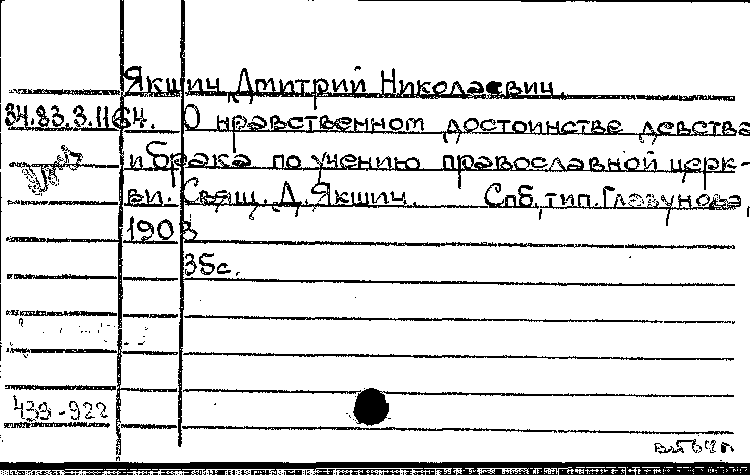 Якшич, Дмитрий Николаевич.
34.83.3.1164. О нравственном достоинстве девства
и брака по учению православной церк-
ви. Свящ. Д. Якшич. Спб, тип. Глазунова,
1903
35с.
439-922